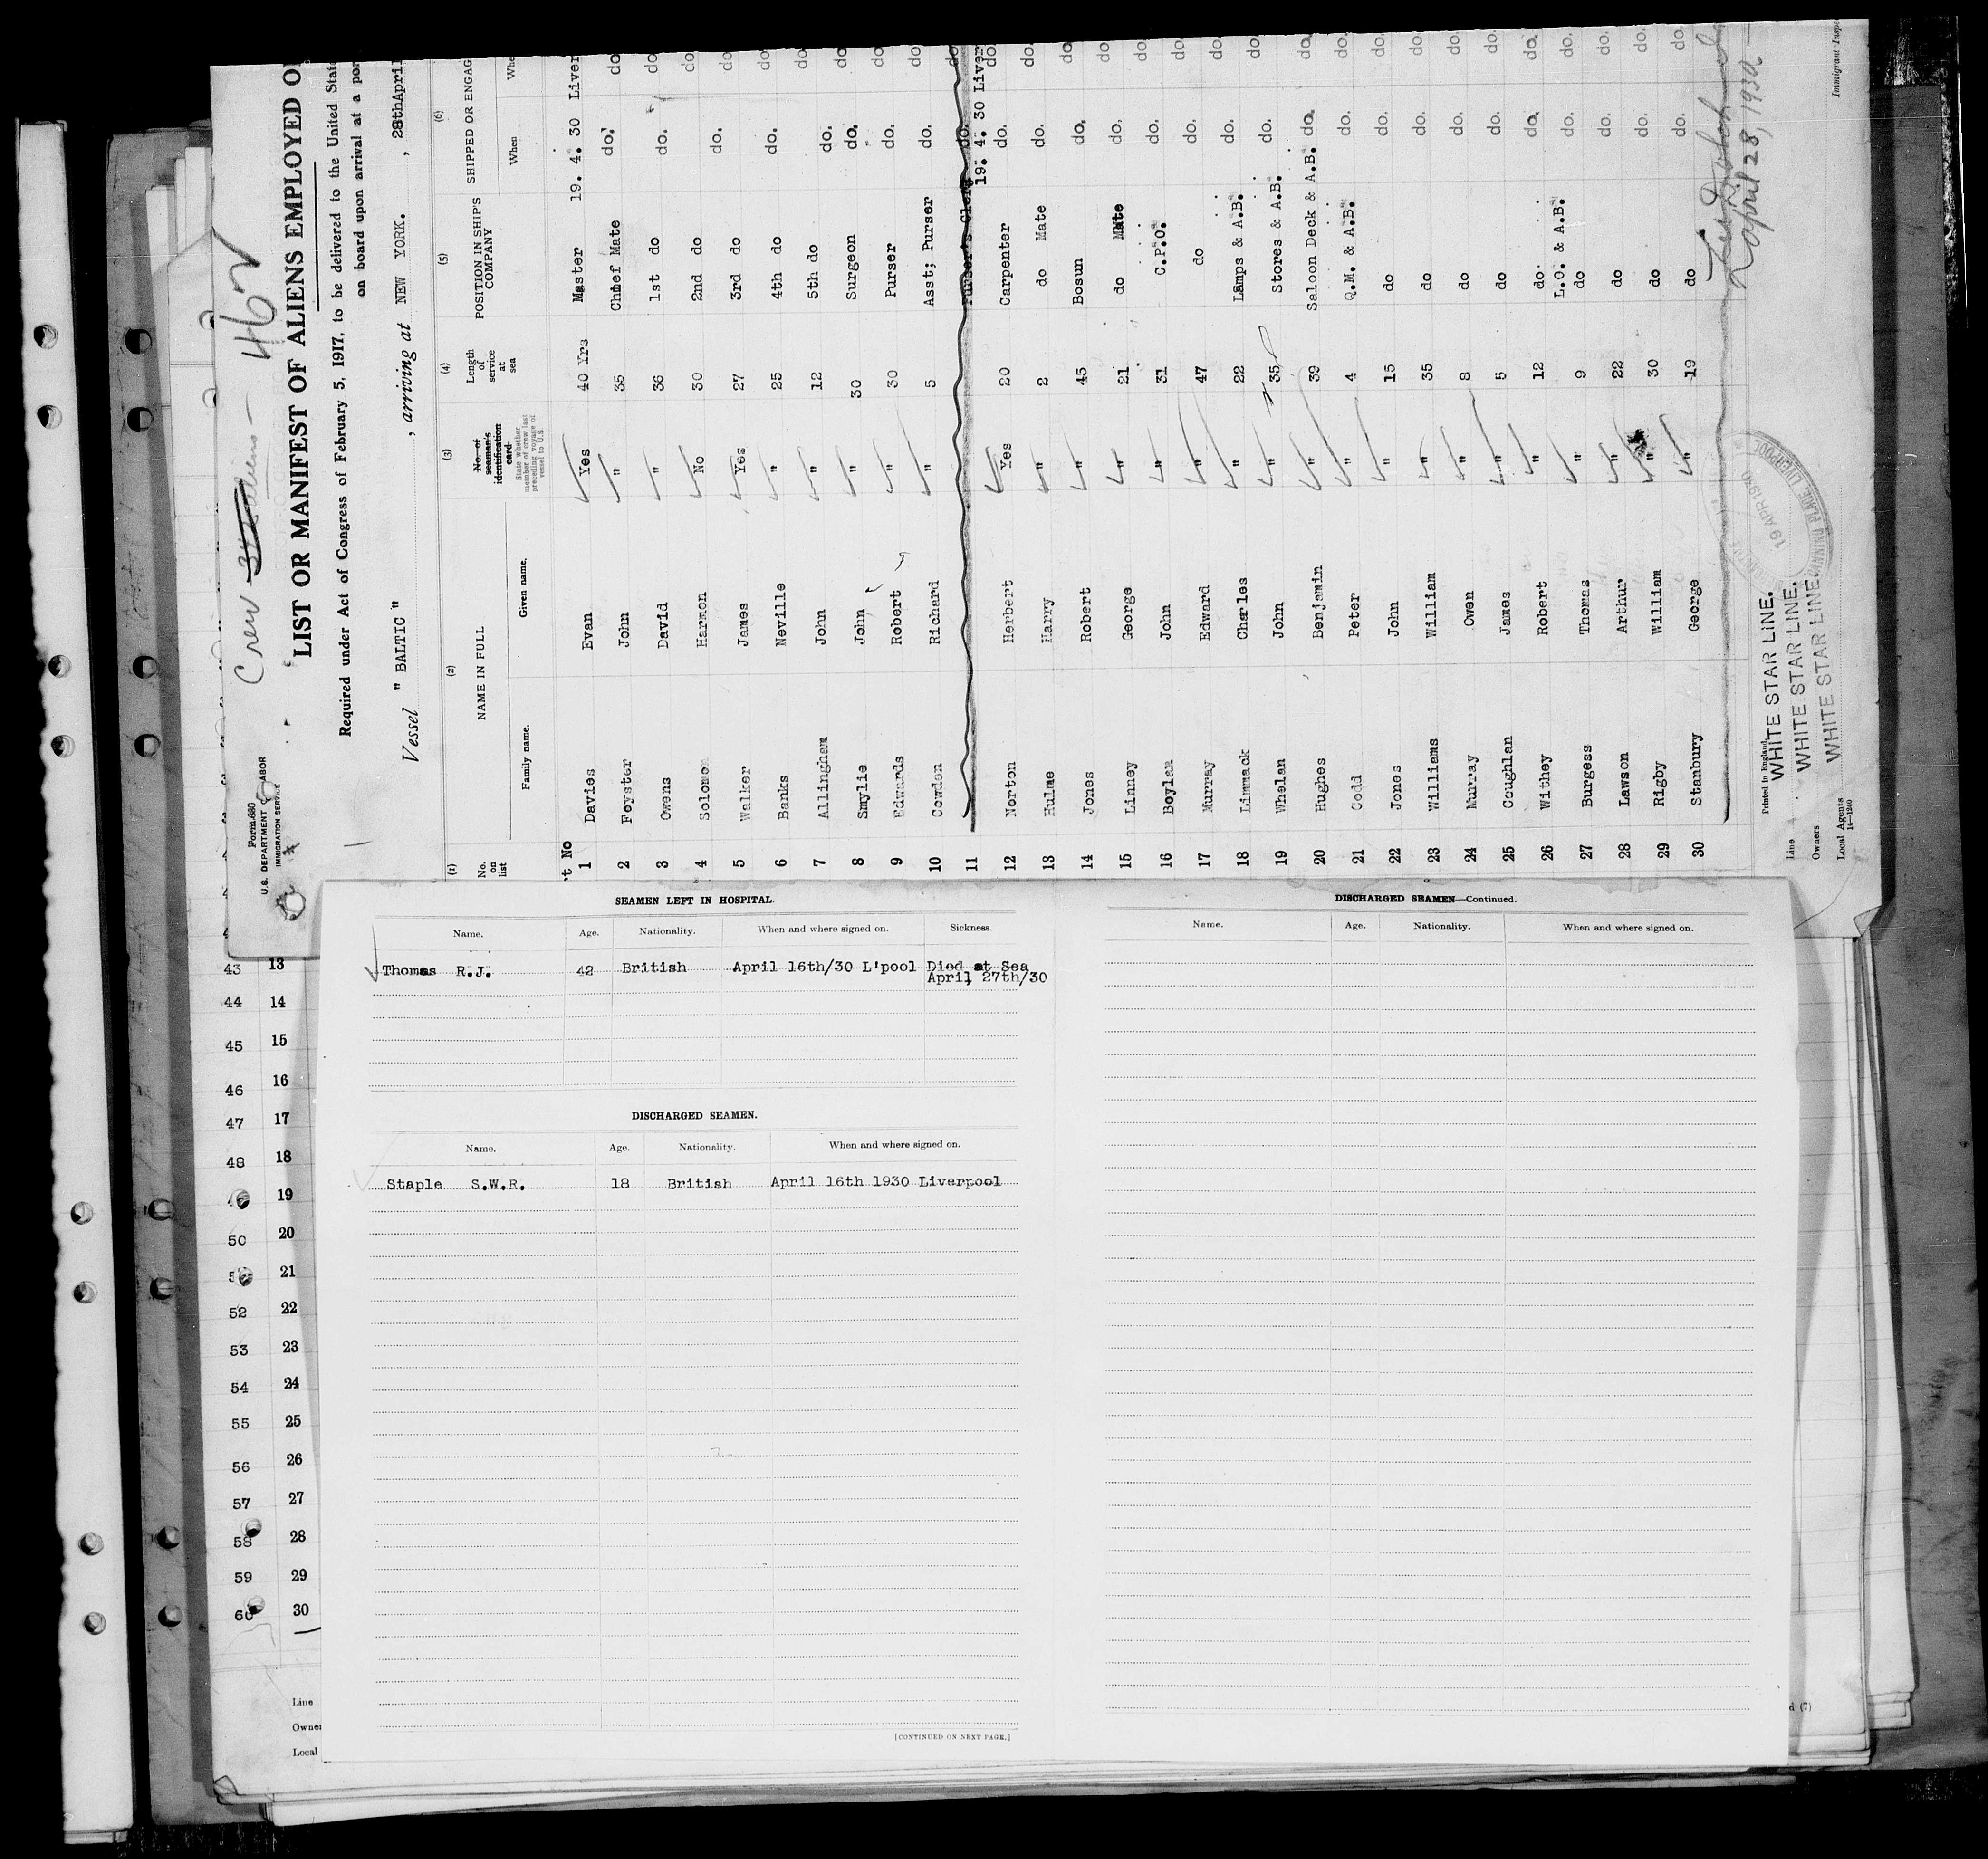 Crew 462
Form 680
U.S. DEPARTMENT OF LABOR
IMMIGRATION SERVICE
LIST OR MANIFEST OF ALIENS EMPLOYED O
Required under Act of Congress of February 5, 1917, to be delivered to the United State
on board upon arrival at a por
Vessel " BALTIC " , arriving at NEW YORK. , 28thApril
(1) (2) (3) (4) (5) (6)
No. on list NAME IN FULL No. of seaman's identification card Length of service at sea POSITION IN SHIP'S COMPANY SHIPPED OR ENGAG
State whether member of crew last preceding voyage of vessel to U.S.
Family name. Given name. When Whe
t No
1 Davies Evan Yes 40 Yrs Master 19. 4. 30 Liver
2 Foyster John " 35 Chief Mate do. do
3 Owens David " 36 1st do do. do.
4 Solomon Harmon No 30 2nd do do. do.
5 Walker James Yes 27 3rd do do. do.
6 Banks Neville " 25 4th do do. do.
7 Allingham John " 12 5th do do. do
8 Smylie John " 30 Surgeon do. do.
9 Edwards Robert " 30 Purser do. do.
10 Cowden Richard " 5 Asst; Purser do. do.
11 Purser's Clerk do. do.
19. 4. 30 Liver
12 Norton Herbert Yes 20 Carpenter do. do.
13 Hulme Harry " 2 do Mate do. do.
14 Jones Robert " 45 Bosun do. do.
15 Linney George " 21 do Mate do. do.
16 Boylan John " 31 C.P.O. do. do.
17 Murray Edward " 47 do do. do.
18 Limmack Charles " 22 Lamps & A.B. do. do.
19 Whelan John " 35 Stores & A.B. do. do.
20 Hughes Benjamin " 39 Saloon Deck & A.B. do. do.
21 Codd Peter " 4 Q.M. & A.B. do. do.
22 Jones John " 15 do do. do.
23 Williams William " 35 do do. do.
24 Murray Owen " 8 do do. do.
25 Coughlan James " 5 do do. do.
26 Withey Robert " 12 do do. do.
27 Burgess Thomas " 9 L.O. & A.B. do do. do.
28 Lawson Arthur " 22 do do. do.
29 Rigby William " 30 do do. do.
30 Stanbury George " 19 do do. do.
April 28, 1930
Immigrant Inspe
16 APR 1930
Printed in England.
Line WHITE STAR LINE.
Owners WHITE STAR LINE.
Local Agents WHITE STAR LINE.
14—1240
43 13
44 14
45 15
46 16
47 17
48 18
19
50 20
21
52 22
53 23
54 24
55 25
56 26
57 27
58 28
59 29
60 30
Line
Owner
Local
SEAMEN LEFT IN HOSPITAL.
Name. Age. Nationality. When and where signed on. Sickness.
Thomas R.J. 42 British April 16th/30 L'pool Died at Sea
April, 27th/30
DISCHARGED SEAMEN.
Name. Age. Nationality. When and where signed on.
Staple S.W.R. 18 British April 16th 1930 Liverpool
[CONTINUED ON NEXT PAGE.]
DISCHARGED SEAMEN—Continued.
Name. Age. Nationality. When and where signed on.
d (7)